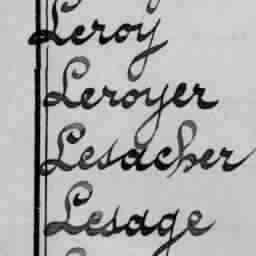 Leroy
Leroyer
Lesacher
Lesage